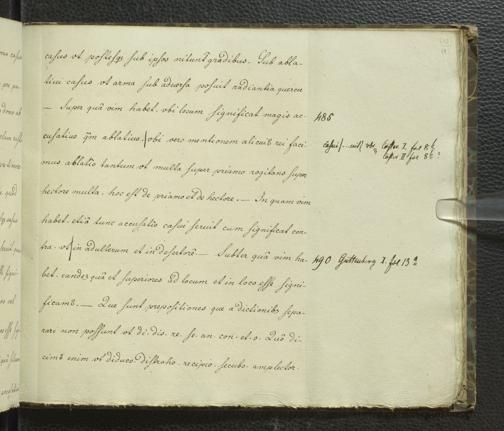 casus vt postesqz sub ipsos nitunt gradibus. Sub abla-
tiui casus vt arma sub aduersa posuit radiantia quercu
— Super quā vim habet. vbi locum significat magis ac-
cusatius qm ablatius. vbi vero mentionem alicuiꝰ rei faci
mus ablatio tantum vt multa super priamo rogitans super
hectore multa. hoc est de priamo et de hectore. — In quam vim
habet. etiā tunc accusatio casui seruit cum significat con-
tra. vt in adulterum et in desertorē — Subter quā vim ha-
bet. eandē quā et superiores Ad locum et in loco esse signi-
ficantē. — Que sunt prepositiones que a dictionibꝰ sepa-
rari non possunt vt di. dis. re. se. an. con. et. o. Quō di-
cimꝰ enim vt diduco. distraho. recipio. secubo. amplector.
486
casus I. fol 8
casus II fol 8
490 Guttenberg I. fol 13